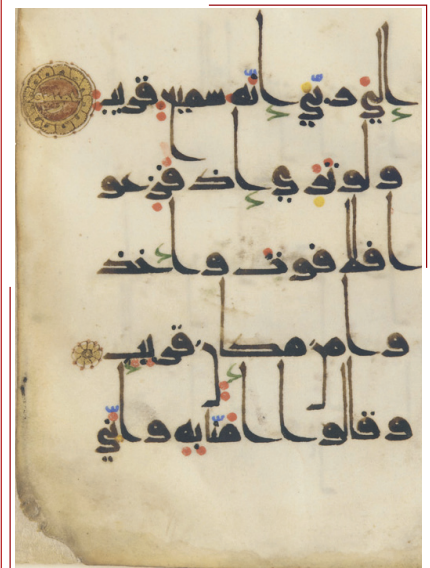 إلي ربّي إنّه سميع قريب
ولو تري إذ فزعو
ا فلا فوت وأخذ
وا من مكان قريب
وقالوا امنّا به وأنّي